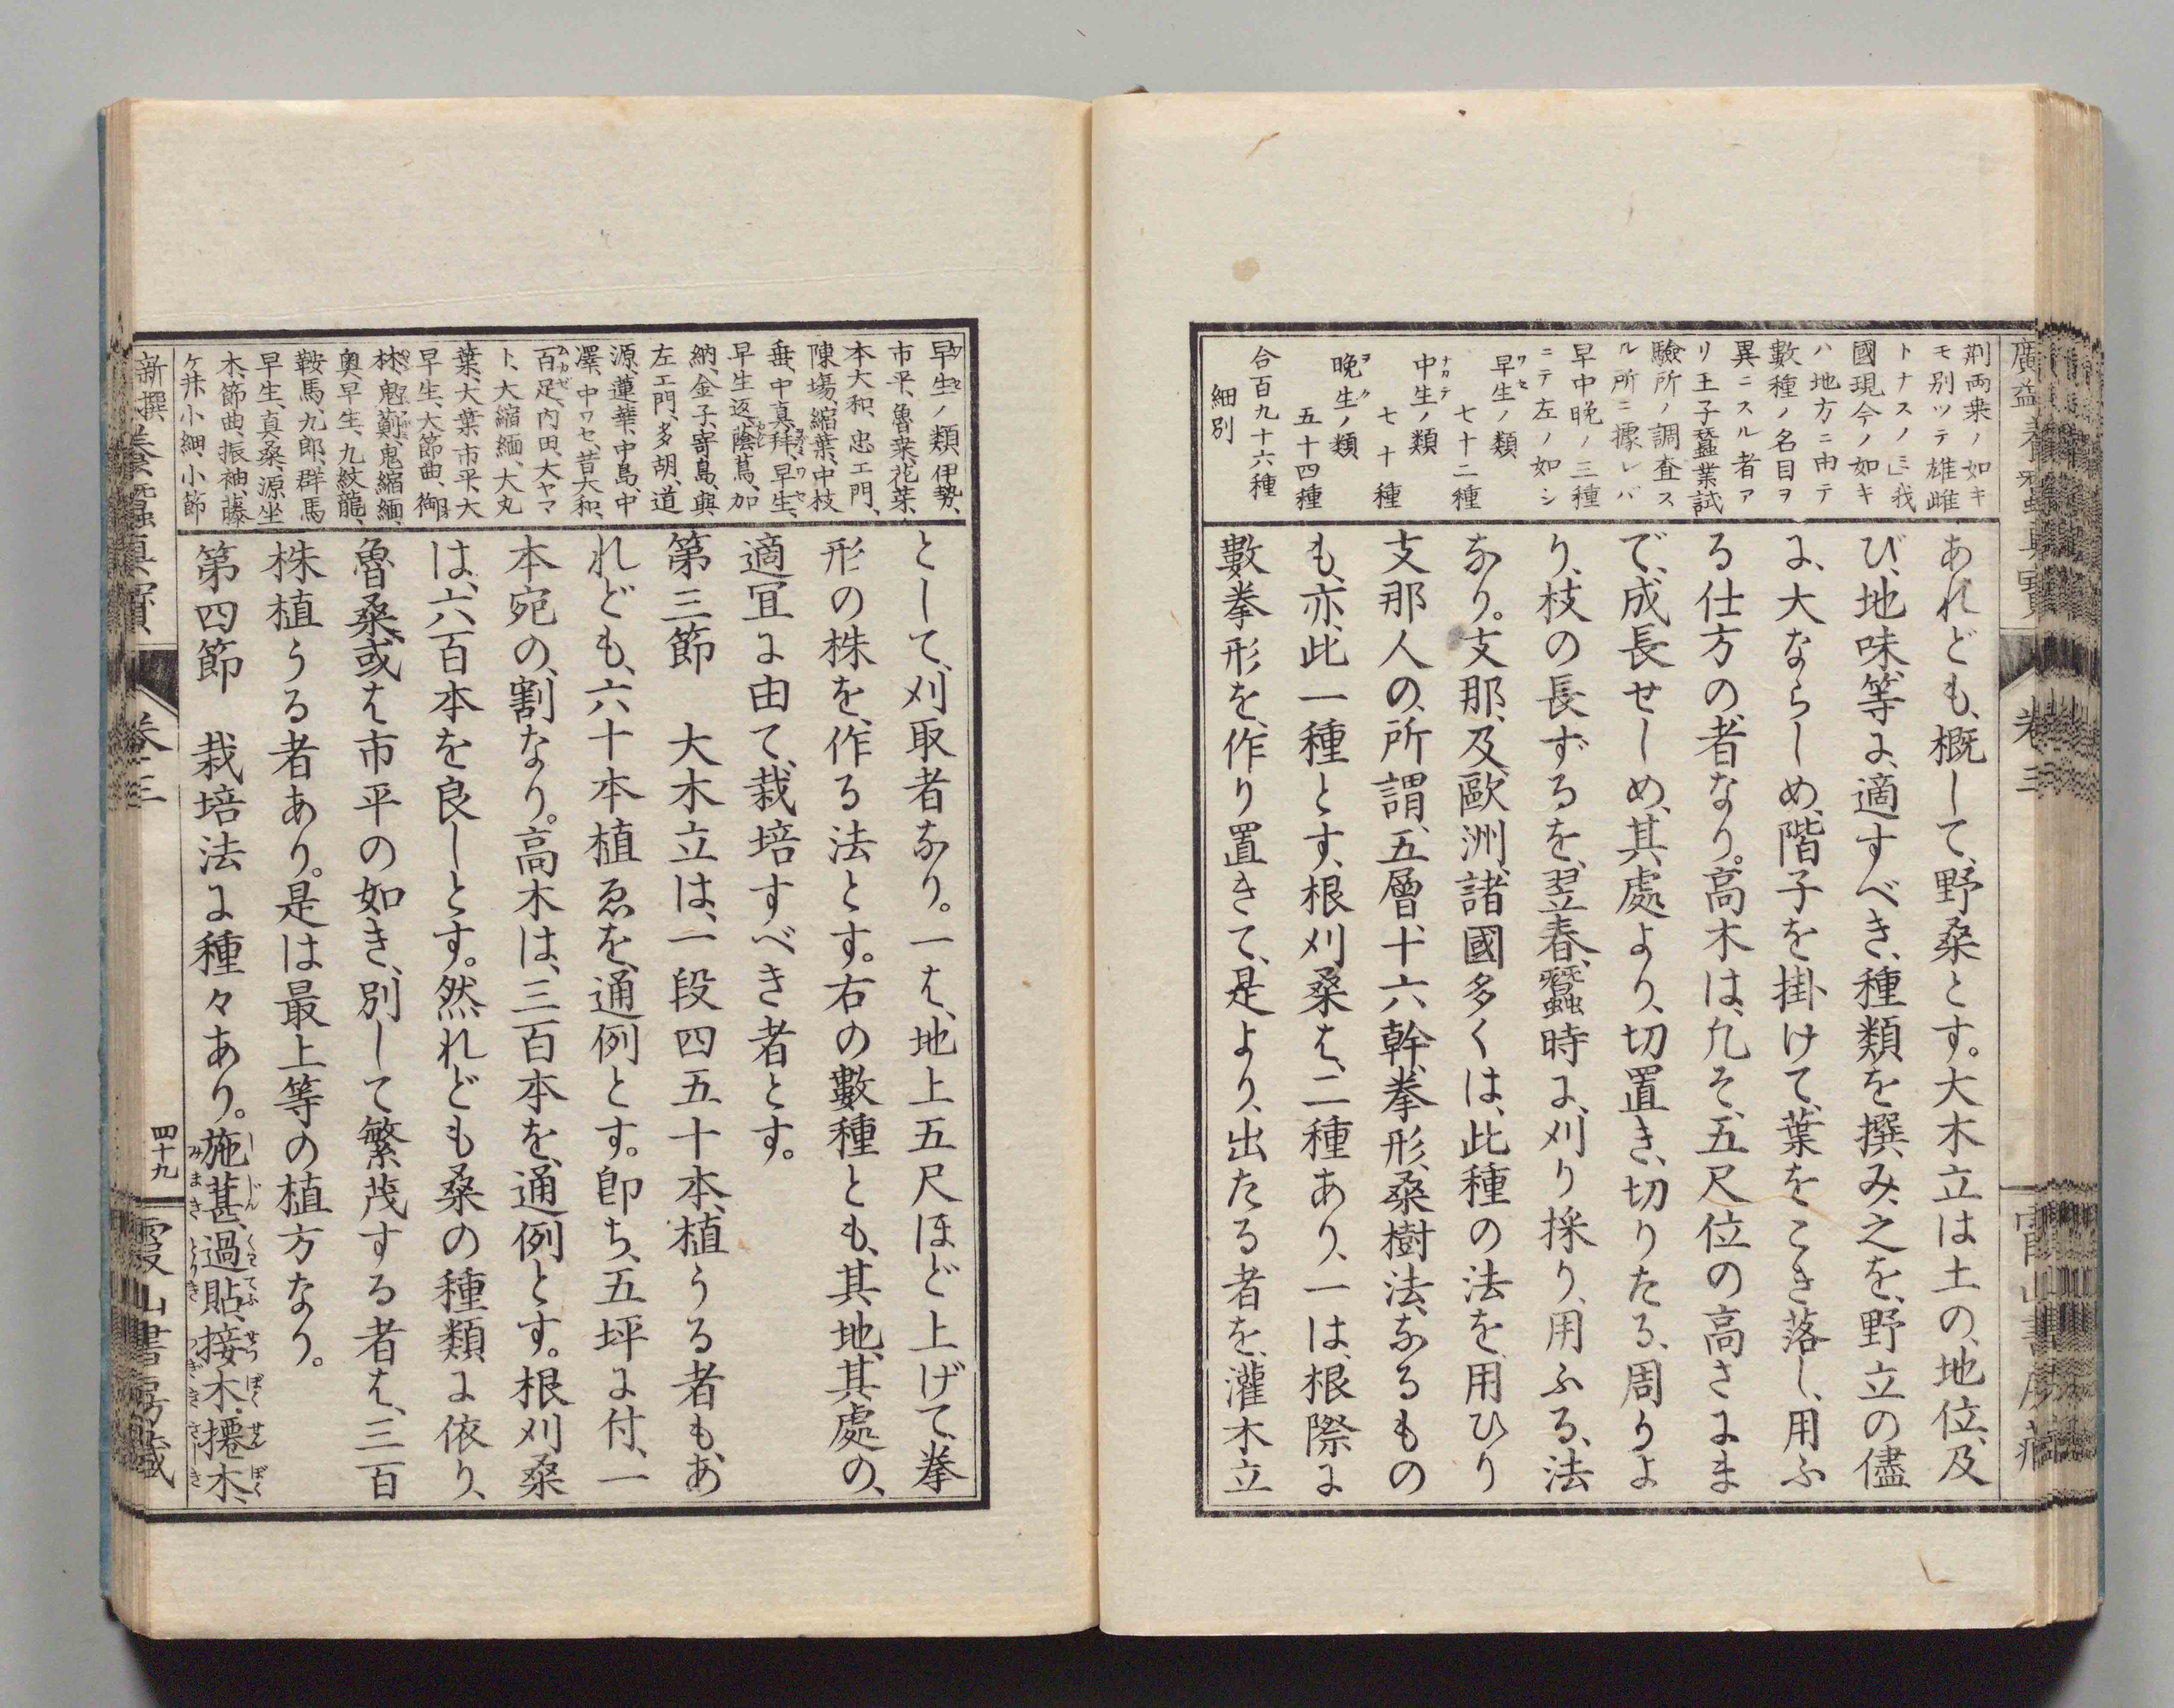 廣益養蠶眞寶
卷三
霞山書房藏
荊両桒ノ如キ
モ別ツテ雄雌
トナスノミ」我
國現今ノ如キ
ハ地方ニ由テ
數種ノ名目ヲ
異ニスル者ア
リ王子蠶業試
驗所ノ調査ス
ル所ニ據レバ
早中晩ノ三種
ニテ左ノ如シ
早生ノ類
七十二種
中生ノ類
七十種
晩生ノ類
五十四種
合百九十六種
細別
あれども、概して、野桑とす。大木立は土の、地位、及
び、地味、等に、適すべき、種類を撰み、之を、野立の儘
に、大ならしめ、階子を掛けて、葉をこき落し、用ふ
る仕方の者なり。高木は、凡そ、五尺位の高さにま
で、成長せしめ、其處より、切置き、切りたる、周りよ
り、枝の長ずるを、翌春、蠶時に、刈り採り、用ふる、法
なり。支那、及、歐洲、諸國多くは、此種の法を、用ひり
支那人の、所謂、五層、十六幹、拳形、桑樹法、なるもの
も、亦、此一種とす、根刈桑は、二種あり、一は、根際に
數拳形を、作り置きて、是より、出たる者を、灌木立
早生ノ類伊勢、
市平、魯桒、花桒、
本大和、忠エ門、
陳塲、縮葉、中枝
垂、中真、拜、早生、
早生返、蔭蔦、加
納、金子、寄島、與
左エ門、多胡、道
源、蓮華、中島、中
澤、中ワセ、昔大和、
百足、内田、大ヤマ
ト、大縮緬、大丸
葉、大葉、市平、大
早生、大節曲、御
林、鬼薊、鬼縮緬、
奥早生、九紋龍、
鞍馬、九郎、群馬
早生、真桑、源坐
木、節曲、振袖、藤
ヶ井小細、小節
として、刈取者なり。一は、地上五尺ほど上げて、拳
形の株を、作る法とす。右の數種とも、其地、其處の、
適冝に由て、栽培すべき者とす。
第三節　大木立は、一段四五十本、植うる者も、あ
れども、六十本植ゑを、通例とす。即ち、五坪に付、一
本宛の、割なり。高木は、三百本を、通例とす。根刈桑
は、六百本を良しとす。然れども桑の種類に依り、
魯桑、或は市平の如き、別して繁茂する者は、三百
株植うる者あり。是は最上等の植方なり。
第四節　栽培法に種々あり。施葚、過貼、接木、㩰木、
新撰養蠶眞寶
卷三
四十九
霞山書房藏